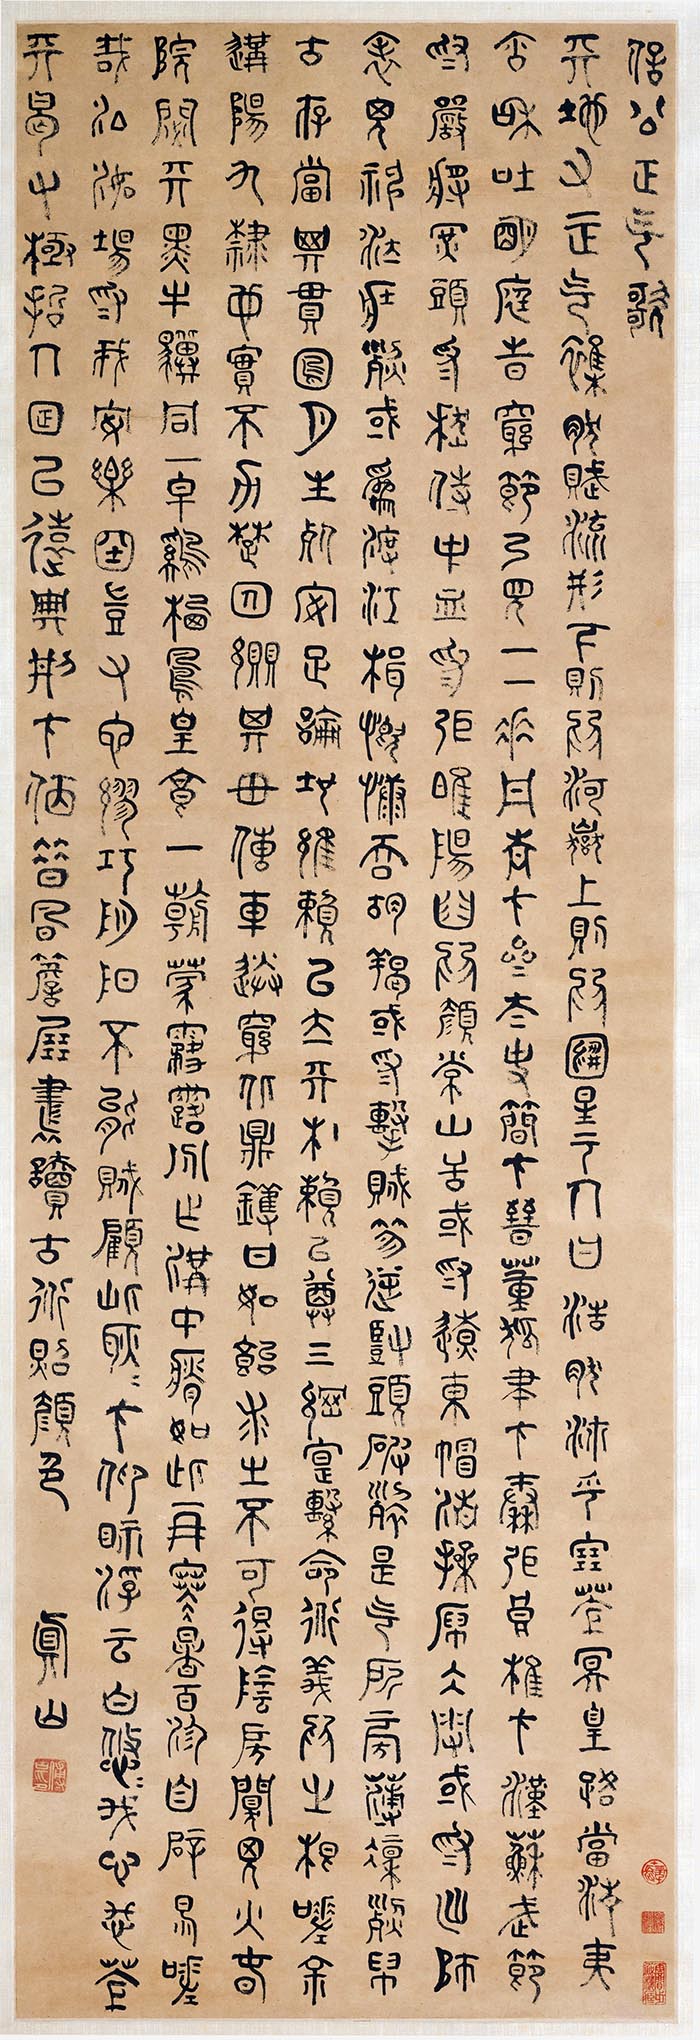 信公正气歌
天地又正气雜然賦流形下則為河嶽上則為日星于人曰浩然沛乎塞蒼冥皇路當清夷
含和吐明庭時窮節乃見一一垂丹青在齊太史簡在晉董狐筆在秦張良椎在漢蘇武節
為嚴將軍頭為嵇侍中血為張睢陽齒為顏常山舌或為遼東帽清操厲冰雪或為出師
表鬼神泣壯烈或為渡江楫慷慨吞胡羯或為擊賊笏逆豎頭破裂是气所旁薄凜烈萬
古存當其貫日月生死安足論地維賴以立天柱賴以尊三綱實繫命道義為之根嗟余
遘陽九隸也實不力楚囚纓其冠傳車送窮北鼎鑊甘如飴求之不可得陰房闃鬼火春
院閟天黑牛驥同一皁雞棲鳳皇食一朝蒙霧露分作溝中瘠如此再寒暑百沴自辟易嗟
哉沮洳場為我安樂國豈又它繆巧陰陽不能賊顧此耿耿在仰視浮云白悠悠我心悲蒼
天曷又極哲人日以遠典刑在夙昔風簷展書讀古道照顏色 真山